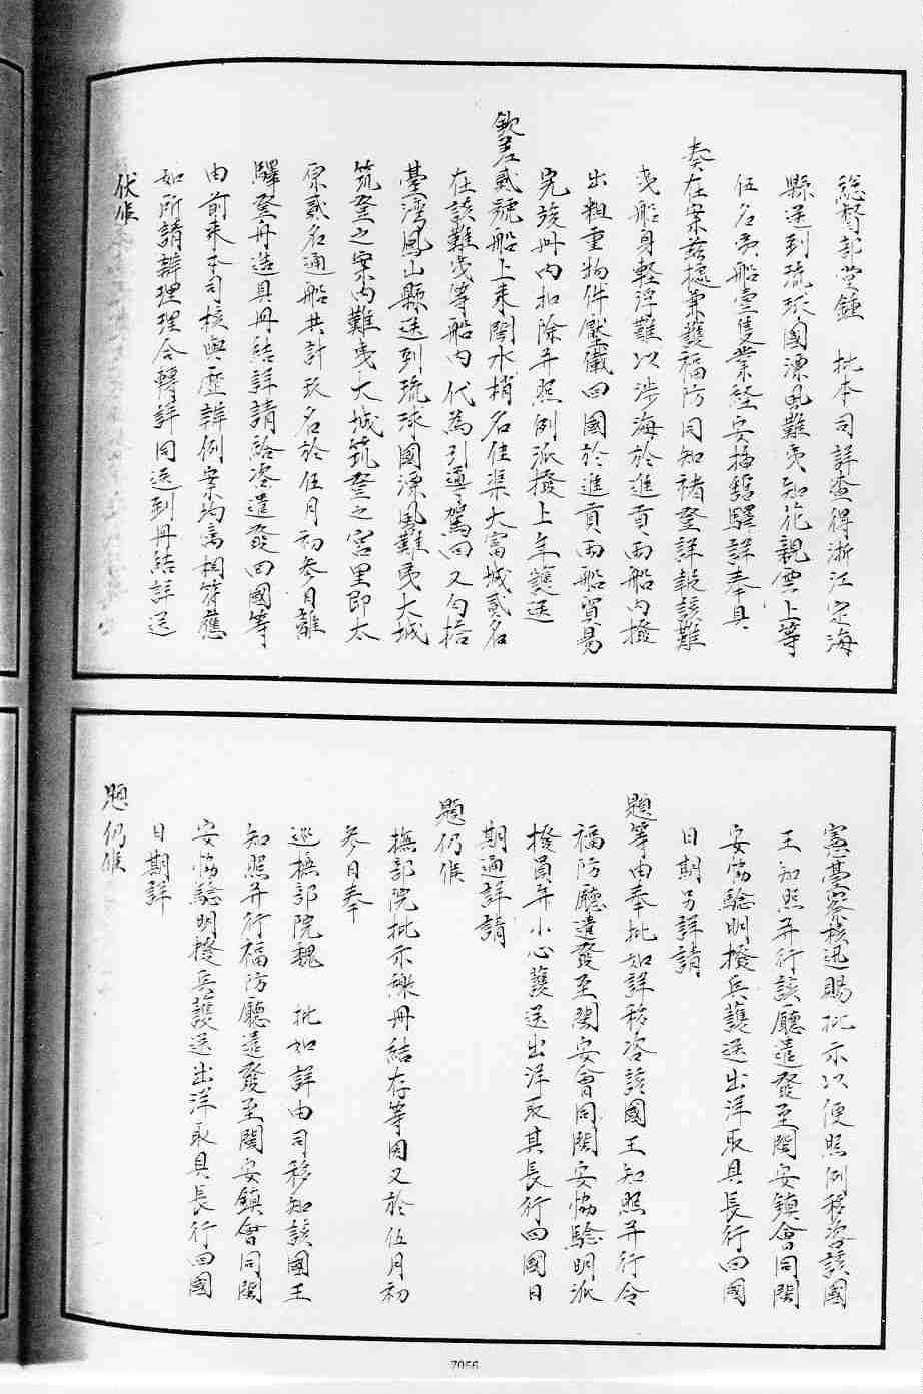 總督部堂鍾　批本司詳查得浙江定海
縣送到琉球國漂風難夷知花親雲上等
伍名夷船壹隻業經安插館驛詳奉具
奏在案茲據兼護福防同知褚登詳報該難
夷船身輕浮難以涉海於進貢兩船內撥
出粗重物件壓儎回國於進貢兩船貿易
完竣冊內扣除并照例派撥上年護送
欽差貳號船上來閩水梢名佳渠大富城貳名
在該難夷等船內代為引導駕回又勻搭
臺灣鳳山縣送到琉球國漂風難夷大城
筑登之案內難夷大城筑登之宮里即太
原貳名通船共計玖名於伍月初叁日離
驛登舟造具冊結詳請給咨遣發回國等
由前來本司核與歷辦例案均屬相符應
如所請辦理理合轉詳同送到冊結詳送
伏候
憲臺察核迅賜批示以便照例移咨該國
王知照并行該廳遣發至閩安鎮會同閩
安協驗明撥兵護送出洋取具長行回國
日期另詳請
題等由奉批如詳移咨該國王知照并行令
福防廳遣發至閩安會同閩安協驗明派
撥員弁小心護送出洋取其長行回國日
期通詳請
題仍候
撫部院批示繳冊結存等因又於伍月初
叁日奉
巡撫部院魏　批如詳由司移知該國王
知照并行福防廳遣發至閩安鎮會同閩
安協驗明撥兵護送出洋取具長行回國
日期詳
題仍候
7056